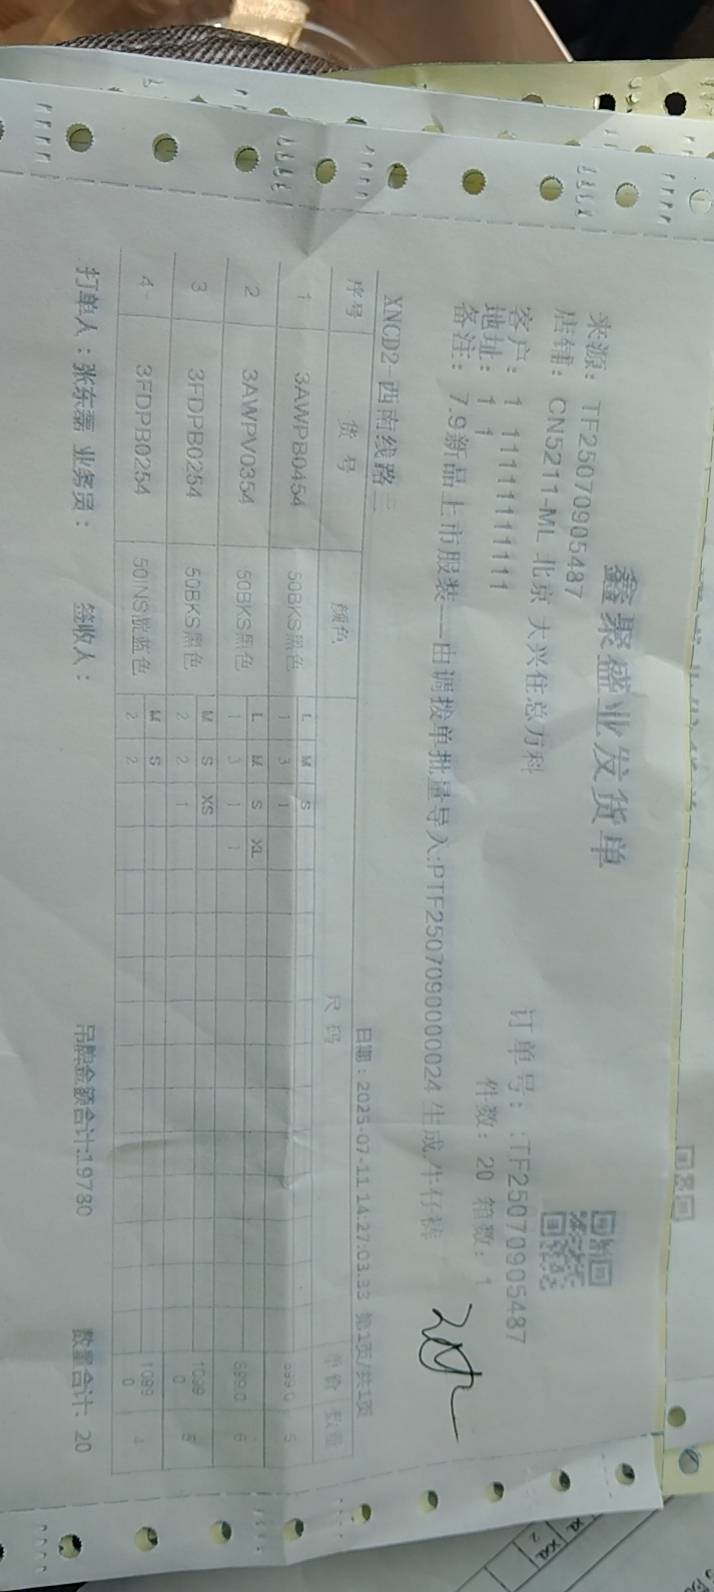 鑫聚盛业发货单
来源: TF25070905487
店铺: CN5211-ML 北京 大兴住总万科
订单号: :TF25070905487
客户: 1 11111111111
件数: 20 箱数: 1
地址: 1 1
备注: 7.9新品上市服装---由调拨单批量导入:PTF2507090000024 生成.牛仔裤
XNCD2-西南线路二
日期：2025-07-11 14:27:03.33 第1页/共1页
序号 货号 颜色 尺码 单价 数量
1 3AWPB0454 50BKS黑色 L M S 5
1 3 1
2 3AWPV0354 50BKS黑色 L M S XL 899.0 6
1 3 1 1
3 3FDPB0254 50BKS黑色 M S XS 1099 0 5
2 2 1
4 3FDPB0254 50INS靛蓝色 M S 1099 0 4
2 2
打单人：张东磊 业务员： 签收人： 吊牌金额合计:19780 数量合计: 20
XL XXL
2